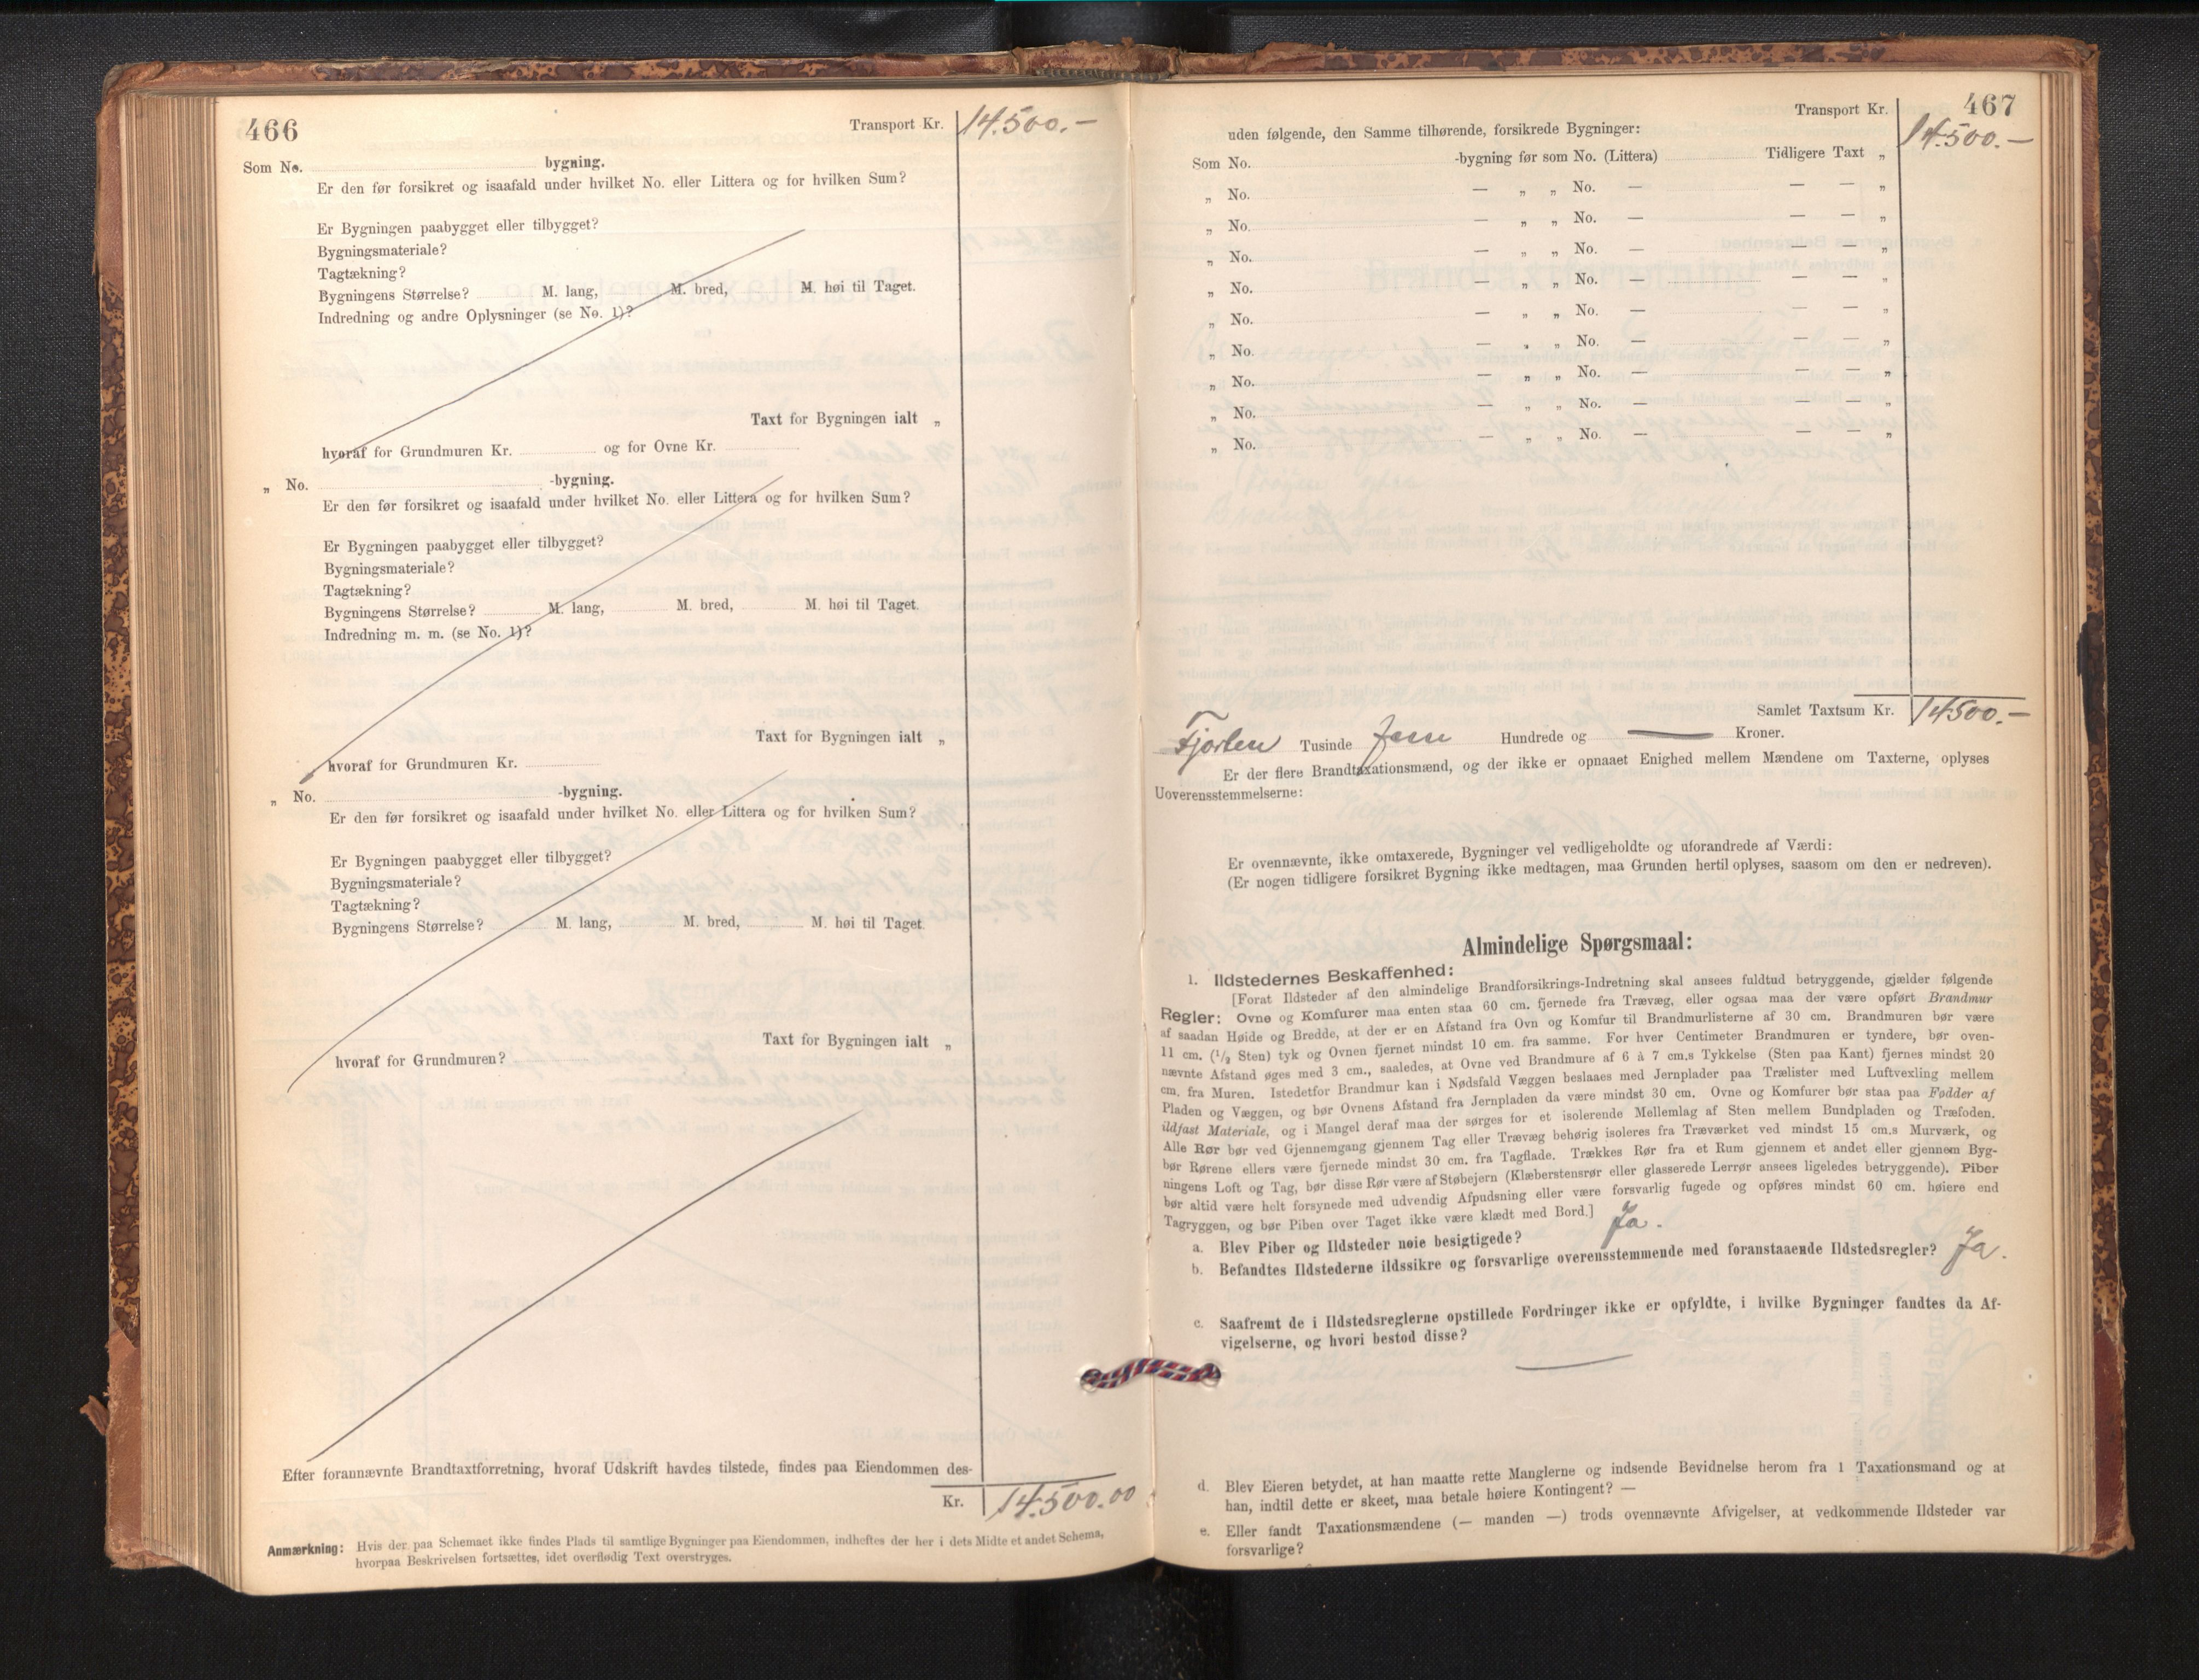 466
Transport Kr. 14.500.—
Som No. bygning.
Er den før forsikret og isaafald under hvilket No. eller Littera og for hvilken Sum?
Er Bygningen paabygget eller tilbygget?
Bygningsmateriale?
Tagtækning?
Bygningens Størrelse? M. lang, M. bred, M. høi til Taget.
Indredning og andre Oplysninger (se No. 1)?
Taxt for Bygningen ialt „
hvoraf for Grundmuren Kr. og for Ovne Kr.
„ No. -bygning.
Er den før forsikret og isaafald under hvilket No. eller Littera og for hvilken Sum?
Er Bygningen paabygget eller tilbygget?
Bygningsmateriale?
Tagtækning?
Bygningens Størrelse? M. lang, M. bred, M. høi til Taget.
Indredning m. m. (se No. 1)?
Taxt for Bygningen ialt „
hvoraf for Grundmuren Kr.
„ No. -bygning.
Er den før forsikret og isaafald under hvilket No. eller Littera og for hvilken Sum?
Er Bygningen paabygget eller tilbygget?
Bygningsmateriale?
Tagtækning?
Bygningens Størrelse? M. lang, M. bred, M. høi til Taget.
Taxt for Bygningen ialt „
hvoraf for Grundmuren?
Efter forannævnte Brandtaxtforretning, hvoraf Udskrift havdes tilstede, findes paa Eiendommen des-
Kr. 14.500.00
Anmærkning: Hvis der paa Schemaet ikke findes Plads til samtlige Bygninger paa Eiendommen, indheftes der her i dets Midte et andet Schema,
hvorpaa Beskrivelsen fortsættes, idet overflødig Text overstryges.
467
Transport Kr. 14.500.—
uden følgende, den Samme tilhørende, forsikrede Bygninger:
Som No. -bygning før som No. (Littera) Tidligere Taxt „
„ No. — „ „ No. — — — „
„ No. — „ „ No. — — — „
„ No. — „ „ No. — — — „
„ No. — „ „ No. — — — „
„ No. — „ „ No. — — — „
„ No. — „ „ No. — — — „
„ No. — „ „ No. — — — „
„ No. — „ „ No. — — — „
„ No. — „ „ No. — — — „
Samlet Taxtsum Kr. 14500.—
Fjorten Tusinde fem Hundrede og — Kroner.
Er der flere Brandtaxationsmænd, og der ikke er opnaaet Enighed mellem Mændene om Taxterne, oplyses
Uoverensstemmelserne:
Er ovennævnte, ikke omtaxerede, Bygninger vel vedligeholdte og uforandrede af Værdi:
(Er nogen tidligere forsikret Bygning ikke medtagen, maa Grunden hertil oplyses, saasom om den er nedreven).
Almindelige Spørgsmaal:
1. Ildstedernes Beskaffenhed:
[Forat Ildsteder af den almindelige Brandforsikrings-Indretning skal ansees fuldtud betryggende, gjælder følgende
Regler: Ovne og Komfurer maa enten staa 60 cm. fjernede fra Trævæg, eller ogsaa maa der være opført Brandmur
af saadan Høide og Bredde, at der er en Afstand fra Ovn og Komfur til Brandmurlisterne af 30 cm. Brandmuren bør være
11 cm. (1/2 Sten) tyk og Ovnen fjernet mindst 10 cm. fra samme. For hver Centimeter Brandmuren er tyndere, bør oven-
nævnte Afstand øges med 3 cm., saaledes, at Ovne ved Brandmure af 6 à 7 cm.s Tykkelse (Sten paa Kant) fjernes mindst 20
cm. fra Muren. Istedetfor Brandmur kan i Nødsfald Væggen beslaaes med Jernplader paa Trælister med Luftvexling mellem
Pladen og Væggen, og bør Ovnens Afstand fra Jernpladen da være mindst 30 cm. Ovne og Komfurer bør staa paa Fødder af
ildfast Materiale, og i Mangel deraf maa der sørges for et isolerende Mellemlag af Sten mellem Bundpladen og Træfoden.
Alle Rør bør ved Gjennemgang gjennem Tag eller Trævæg behørig isoleres fra Træværket ved mindst 15 cm.s Murværk, og
bør Rørene ellers være fjernede mindst 30 cm. fra Tagflade. Trækkes Rør fra et Rum gjennem et andet eller gjennem Byg-
ningens Loft og Tag, bør disse Rør være af Støbejern (Klæberstensrør eller glasserede Lerrør ansees ligeledes betryggende). Piber
bør altid være helt forsynede med udvendig Afpudsning eller være forsvarlig fugede og opføres mindst 60 cm. høiere end
Tagryggen, og bør Piben over Taget ikke være klædt med Bord.]
a. Blev Piber og Ildsteder nøie besigtigede? Ja.
b. Befandtes Ildstederne ildssikre og forsvarlige overensstemmende med foranstaaende Ildstedsregler? Ja.
c. Saafremt de i Ildstedsreglerne opstillede Fordringer ikke er opfyldte, i hvilke Bygninger fandtes da Af-
vigelserne, og hvori bestod disse? —
d. Blev Eieren betydet, at han maatte rette Manglerne og indsende Bevidnelse herom fra 1 Taxationsmand og at
han, indtil dette er skeet, maa betale høiere Kontingent? —
e. Eller fandt Taxationsmændene (— manden —) trods ovennævnte Afvigelser, at vedkommende Ildsteder var
forsvarlige?